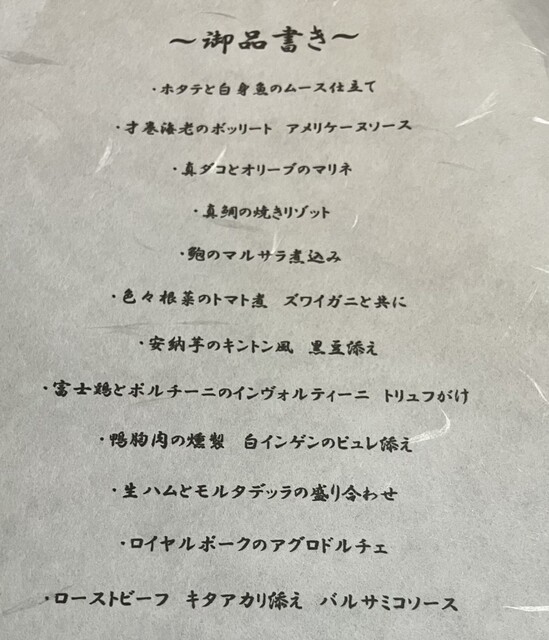 ～御品書き～
・ホタテと白身魚のムース仕立て
・才巻海老のボッリート アメリケーヌソース
・真ダコとオリーブのマリネ
・真鯛の焼きリゾット
・鮑のマルサラ煮込み
・色々根菜のトマト煮 ズワイガニと共に
・安納芋のキントン風 黒豆添え
・富士鶏とポルチーニのインヴォルティーニ トリュフがけ
・鴨胸肉の燻製 白インゲンのピュレ添え
・生ハムとモルタデッラの盛り合わせ
・ロイヤルポークのアグロドルチェ
・ローストビーフ キタアカリ添え バルサミコソース